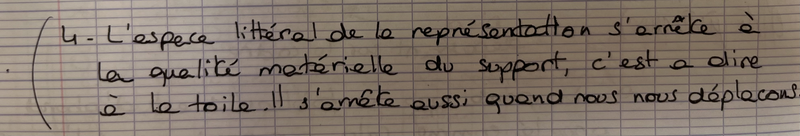 4 - L'espace littéral de la représentation s'arrête à
la qualité matérielle du support, c'est a dire
à la toile. Il s'arrête aussi quand nous nous déplacons.